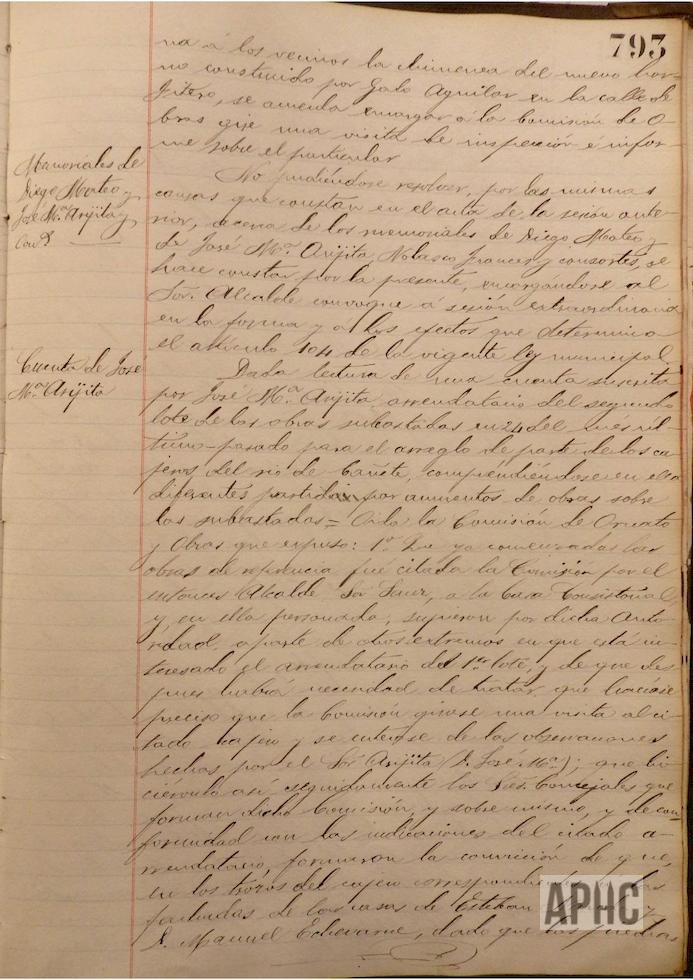 793
na á los vecinos la chimenea del nuevo hor-
no construido por Galo Aguilar en la calle de
Jitero, se acuerda encargar á la Comisión de O-
bras gire una visita de inspección é infor-
me sobre el particular
Memoriales de
Diego Mateo y
José Mª Arijita y
Con.s
No pudiéndose resolver, por las mismas
causas que constan en el acta de la sesión ante-
rior, acerca de los memoriales de Diego Mateo y
de José Mª Arijita, Nolasco Frances y consortes, se
hace constar por la presente, encargandose al
Sor. Alcalde convoque á sesión extraordinaria
en la forma y a los efectos que determina
el artículo 104 de la vigente ley municipal
Cuenta de José
Mª Arijita
Dada lectura de una cuenta suscrita
por José Mª Arijita, arrendatario del segundo
lote de las obras subastadas en 24 del mes úl-
timo-pasado para el arreglo de parte de los ca-
jeros del rio de Cañete, comprendiéndose en ella
diferentes partidas por aumentos de obras sobre
las subastadas = Oida la Comisión de Ornato
y Obras que expuso: 1º Que ya comenzadas las
obras de referencia fue citada la Comisión por el
entonces Alcalde Sor Sanz, a la Casa Consistorial
y en ella personada, supieron por dicha Auto-
ridad, aparte de otros extremos en que está in-
teresado el arrendatario del 1er lote, y de que des-
pues habrá necesidad de tratar, que hacíase
preciso que la Comisión girase una visita al ci-
tado cajero y se enterase de las observaciones
hechas por el Sor Arijita (D. José Mª); que hi-
ciéronlo así seguidamente los Sres. Concejales que
forman dicha Comisión, y sobre mismo, y de con-
formidad con las indicaciones del citado a-
rrendatario, formaron la convicción de que,
en los trozos del cajero
fachadas de las casas de Esteban y
D. Manuel Echevarne, dado que las piedras
APHC